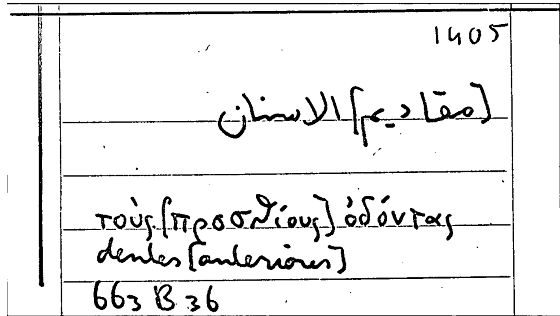 1405
[مقاديم] الاسنان
τοὺς [προσθίους] ὀδόντας
dentes [anteriores]
663 B 36